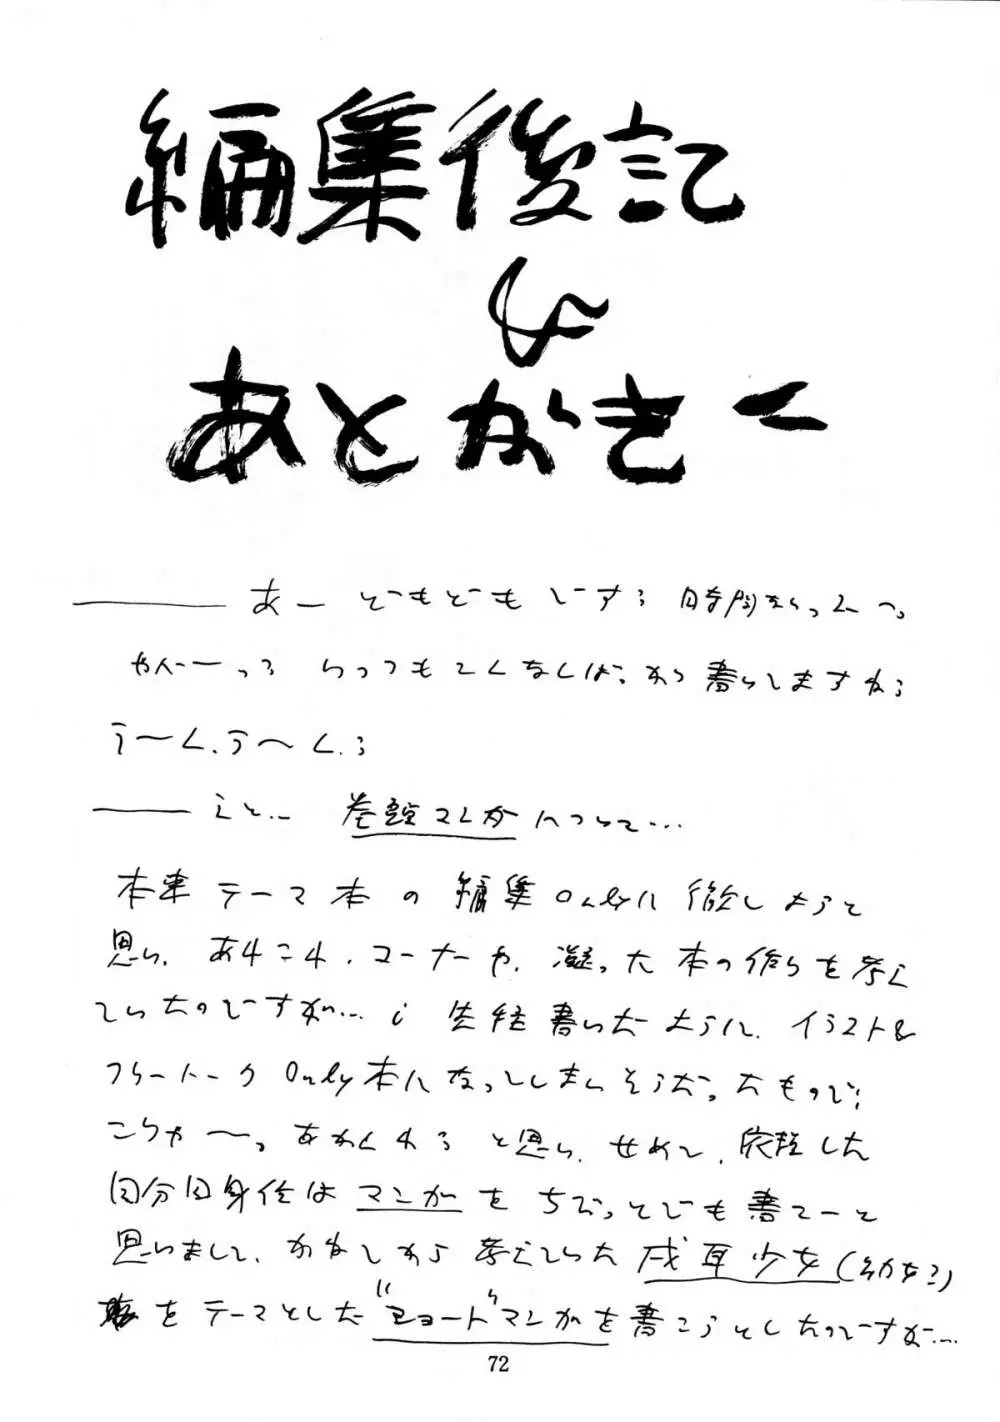 編集後記
&
あとがきー
あー どもども しーすう 時間をくってー
書いてますねう
うーん、うーん、う
えと… 巻頭マンガについて…
本来テーマ本の編集Onlyに徹しようと
思い、あれこれ、コーナーや、凝った本の作りを考え
ていたのですが…。先程書いたように、イラスト&
フリートークOnly本になってしまいそうだったもので、
こりゃ〜。と思い、せめて、依頼した
自分自身位はマンガをちょっとでも書こーと
思いまして、かねてから考えていた戌耳少女(幼女?)
をテーマとした"ショート"マンガを書こうとしたのですが…
72